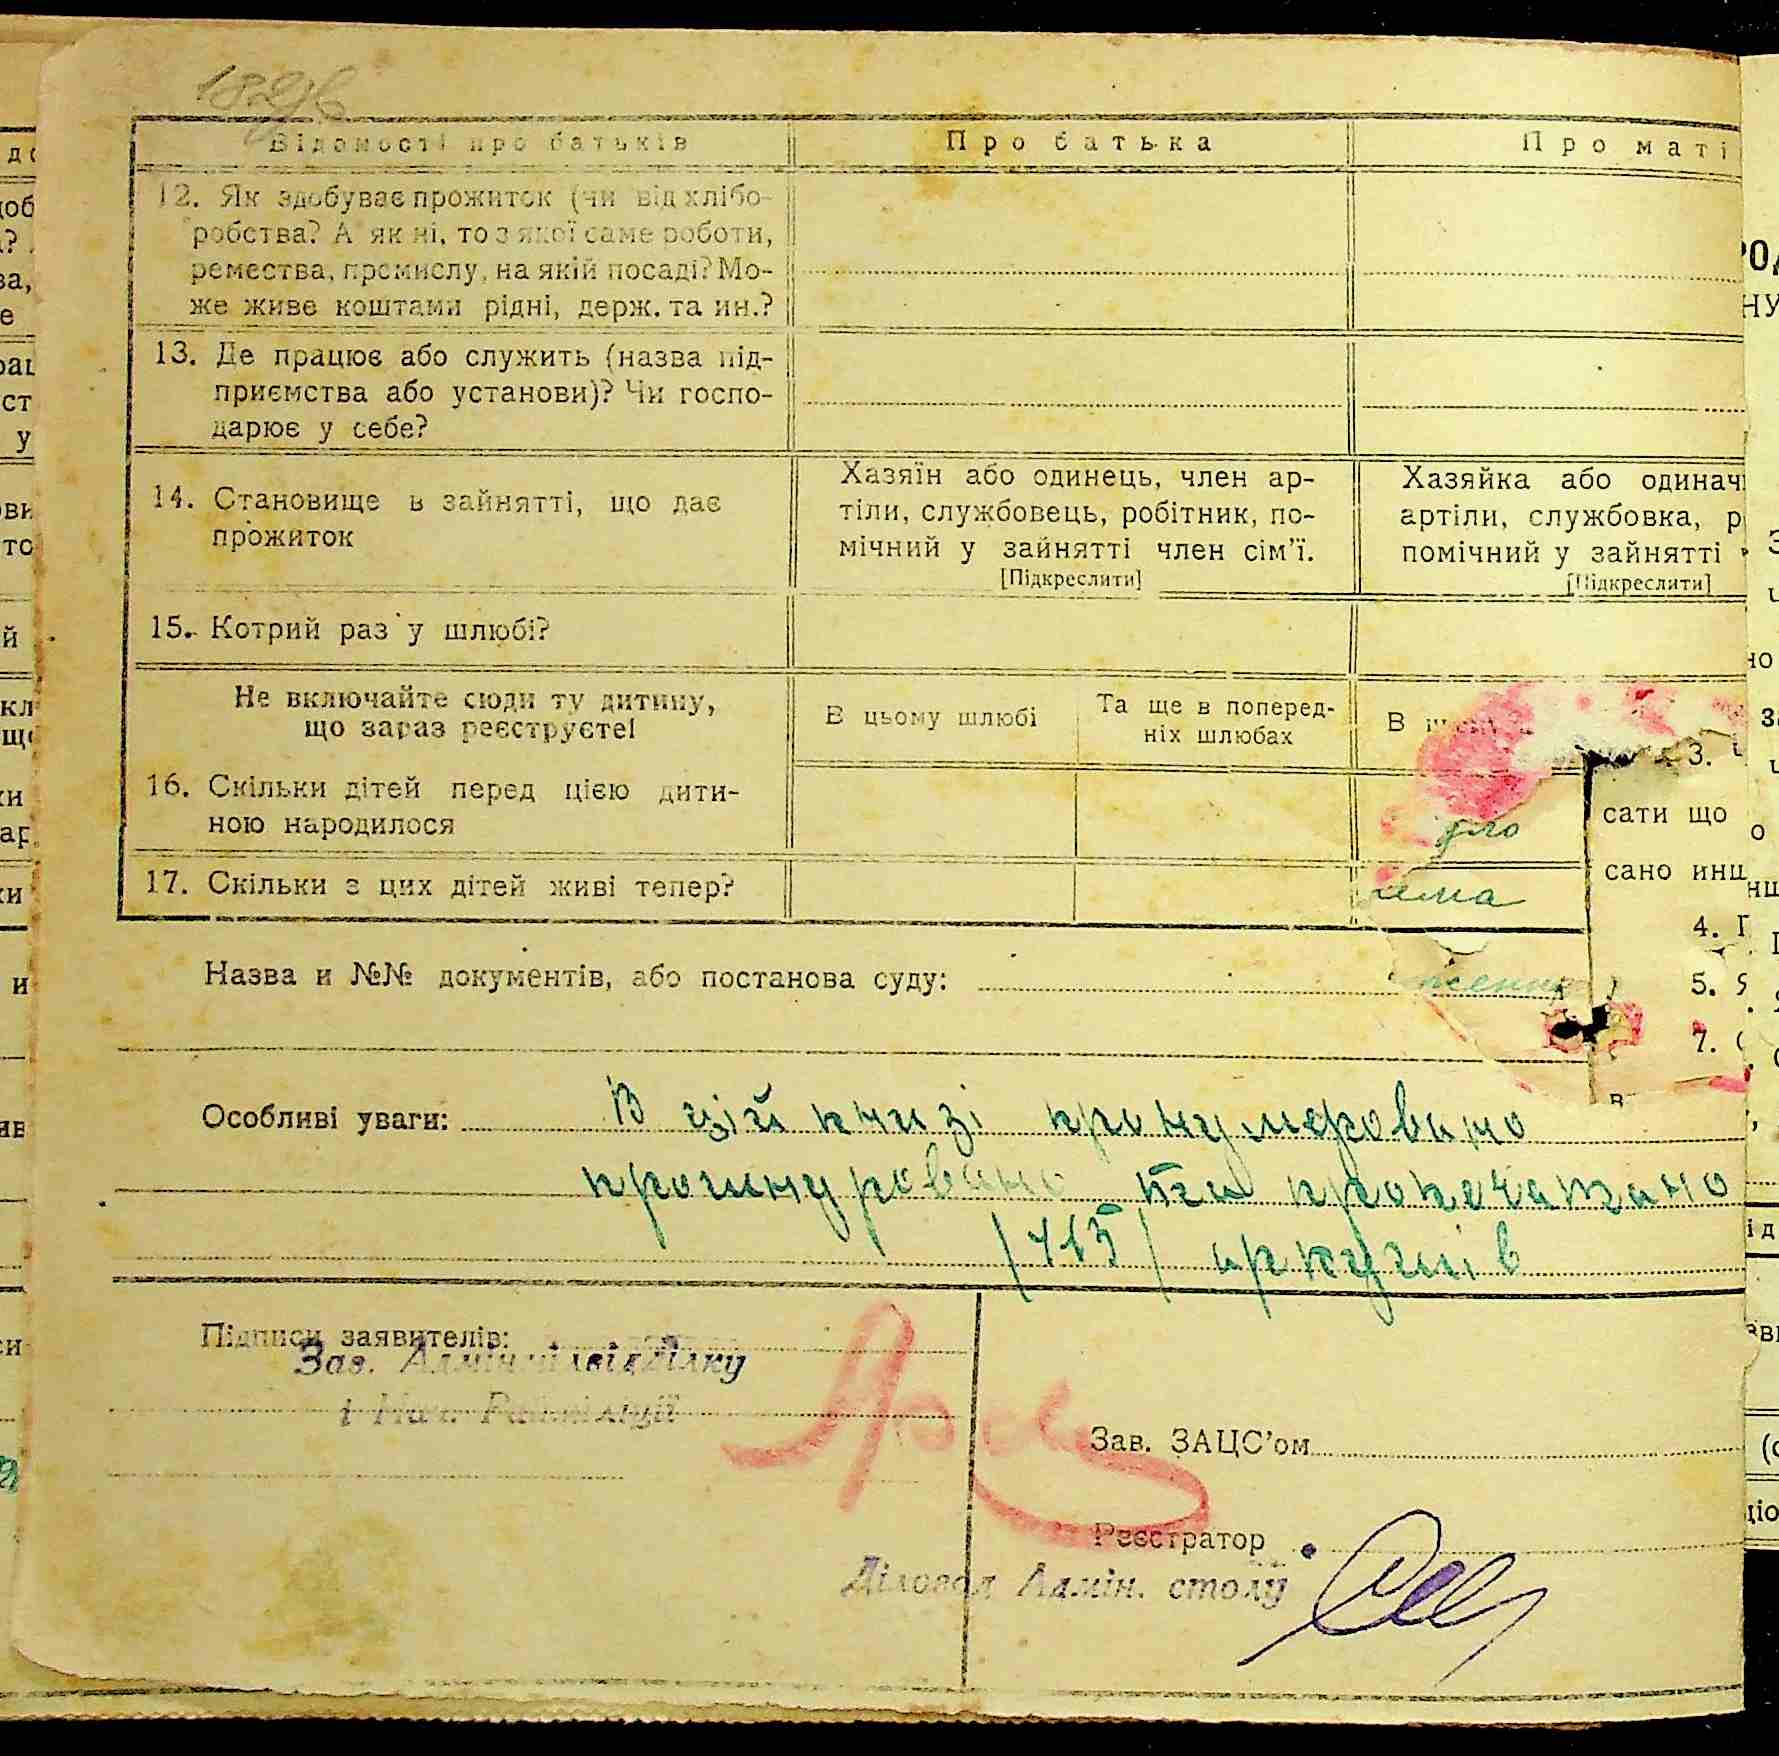 Відомості про батьків
Про батька
Про маті
12. Як здобуває прожиток (чи від хлібо-
робства? А як ні, то з якої саме роботи,
ремества, премислу, на якій посаді? Мо-
же живе коштами рідні, держ. та ин.?
13. Де працює або служить (назва під-
приємства або установи)? Чи госпо-
дарює у себе?
14. Становище в зайнятті, що дає
прожиток
Хазяїн або одинець, член ар-
тіли, службовець, робітник, по-
мічний у зайнятті член сім’ї.
[Підкреслити]
Хазяйка або одинач
артіли, службовка, р
помічний у зайнятті
[Підкреслити]
15. Котрий раз у шлюбі?
Не включайте сюди ту дитину,
що зараз реєструєте!
В цьому шлюбі
Та ще в поперед-
ніх шлюбах
В
16. Скільки дітей перед цією дити-
ною народилося
17. Скільки з цих дітей живі тепер?
3.
сати що
сано инш
4. Г
5. Я
7.
в
Назва и №№ документів, або постанова суду:
Особливі уваги: В цій книзі пронумеровано
прошнуровано та пропечатано
/715/ аркушів
Підписи заявителів:
Зав. Адмінміліввідділку
і Нач. Райміліції
Зав. ЗАЦС’ом
Реєстратор
Діловод Адмін. столу